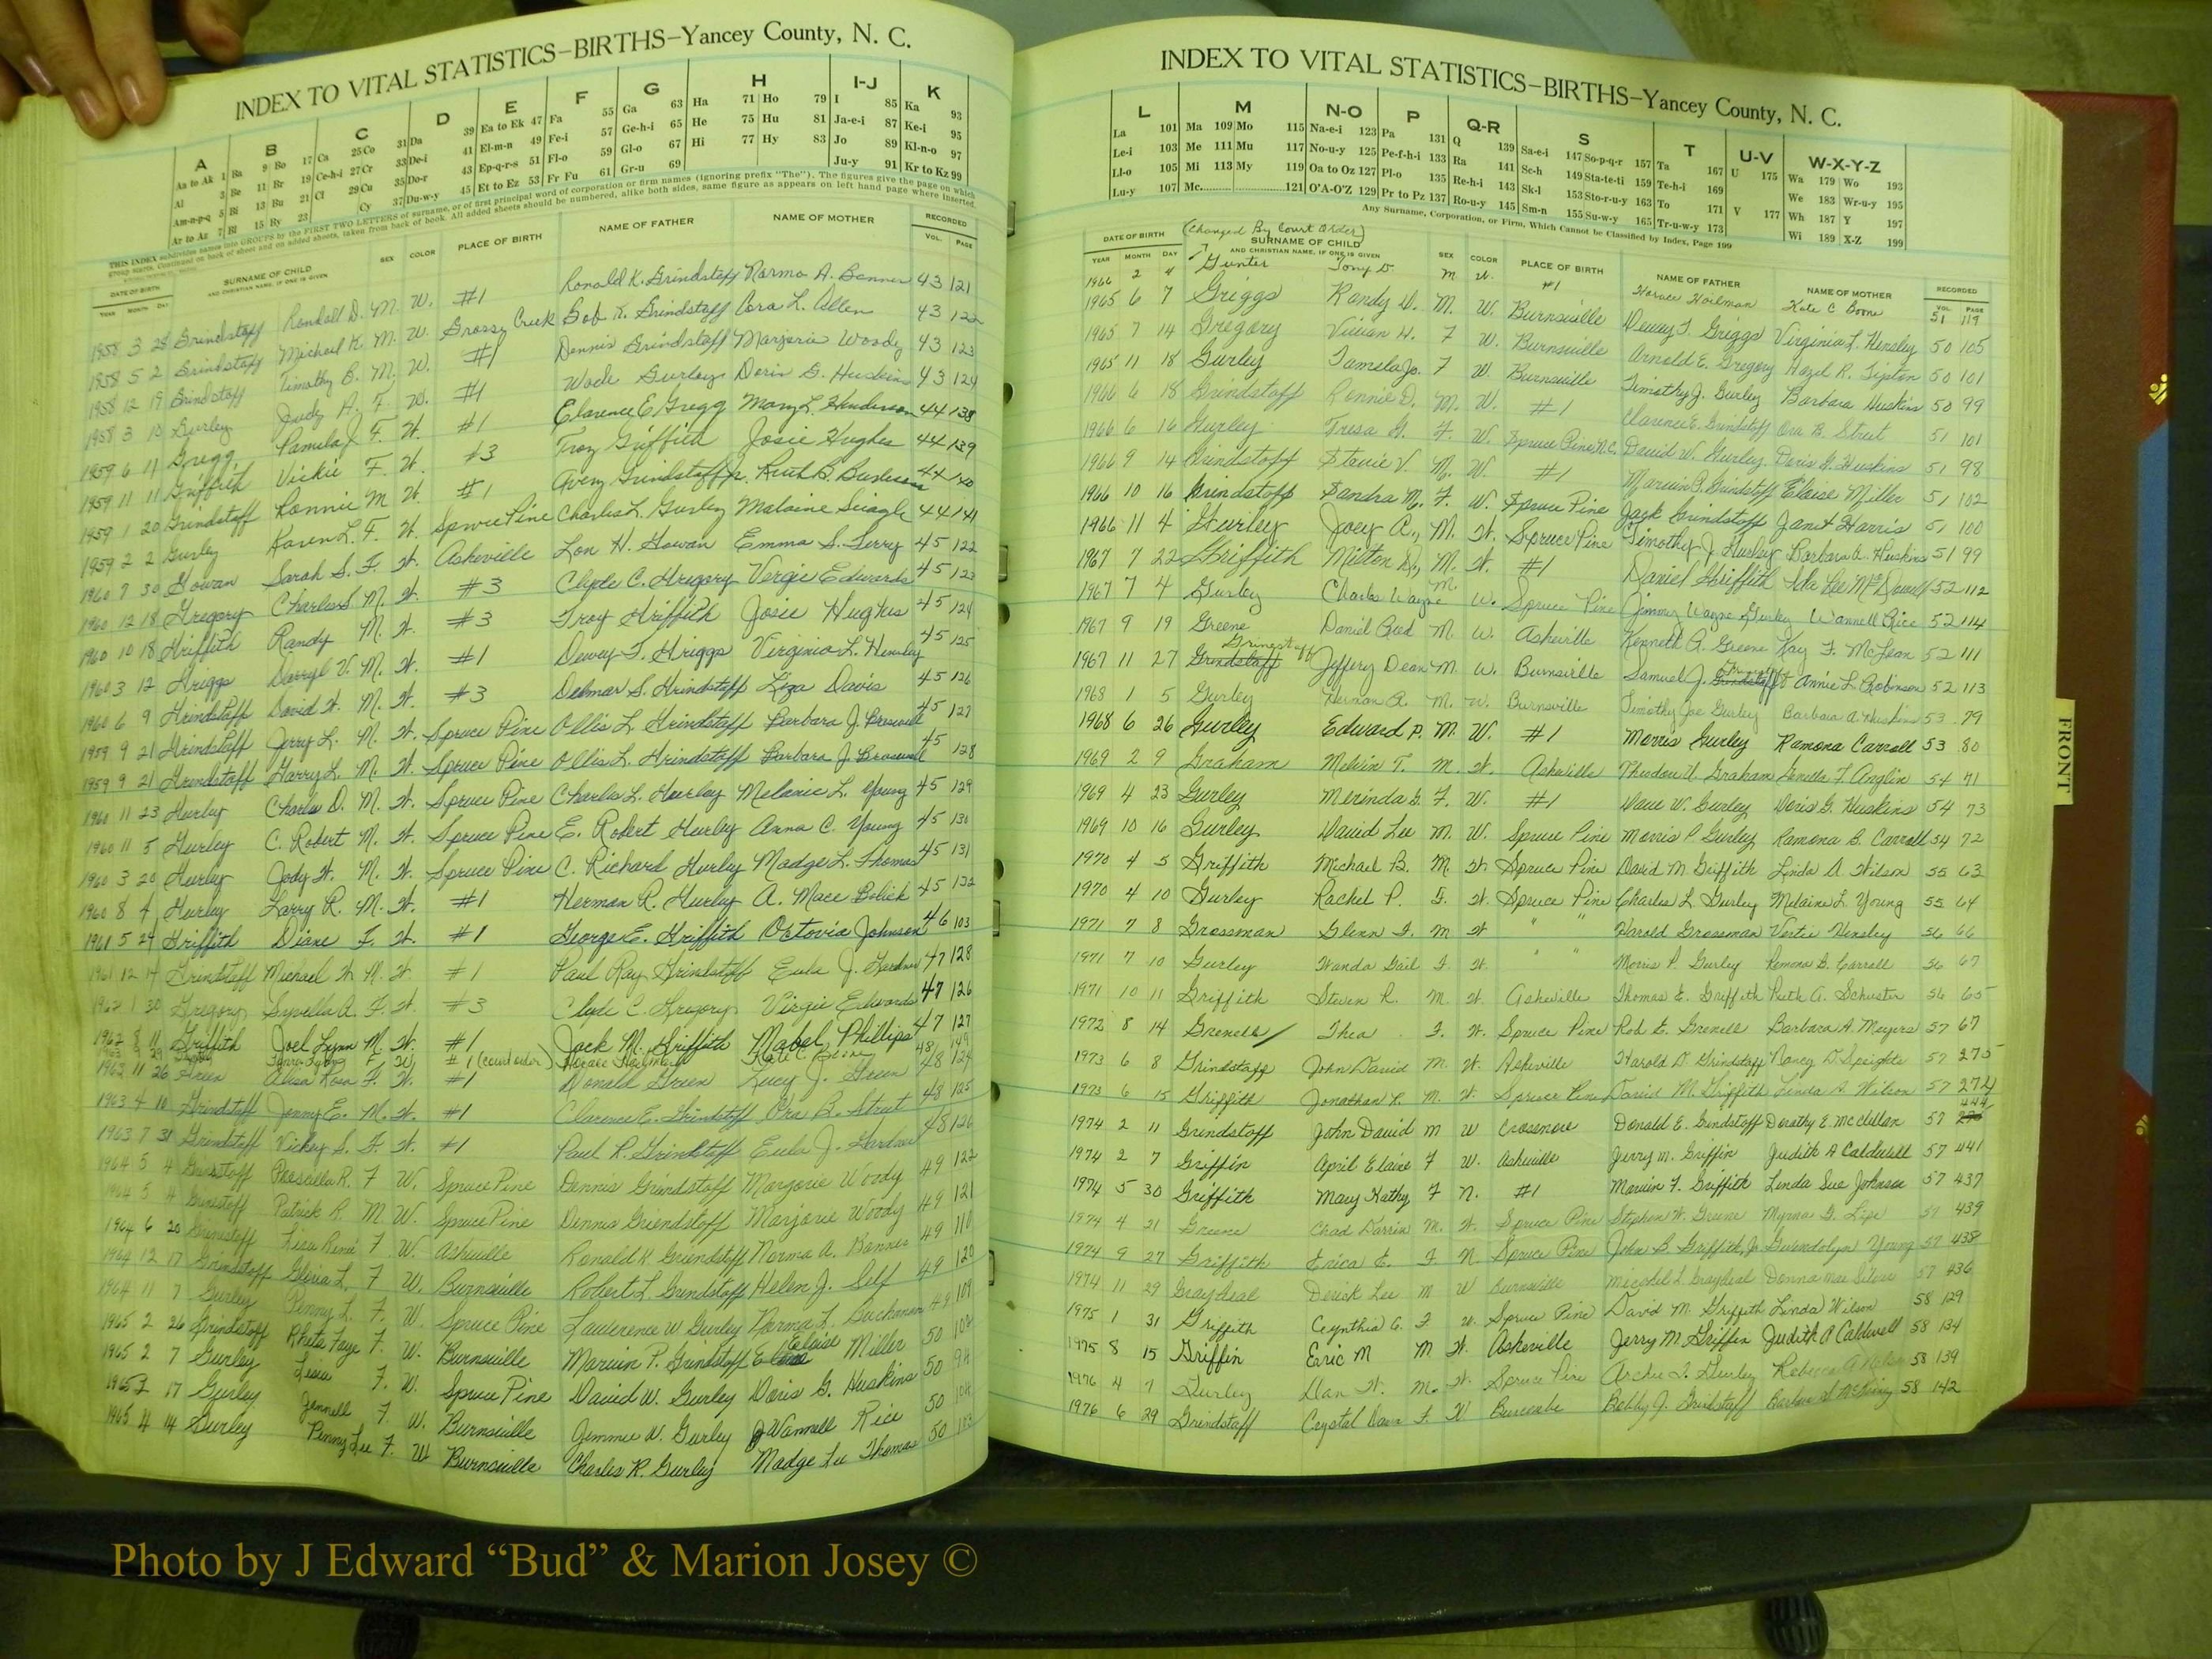 INDEX TO VITAL STATISTICS–BIRTHS–Yancey County, N. C.
A B C D E F G H I-J K
Aa to Ak 1 Ba 9 Bo 17 Ca 25 Co 31 Da 39 Ea to Ek 47 Fa 55 Ga 63 Ha 71 Ho 79 I 85 Ka 93
Al 3 Be 11 Br 19 Ce-h-i 27 Cr 33 De-i 41 El-m-n 49 Fe-i 57 Ge-h-i 65 He 75 Hu 81 Ja-e-i 87 Ke-i 95
Am-n-p-q 5 Bi 13 Bu 21 Cl 29 Cu 35 Do-r 43 Ep-q-r-s 51 Fl-o 59 Gl-o 67 Hi 77 Hy 83 Jo 89 Kl-n-o 97
Ar to Az 7 Bl 15 By 23 Cy 37 Du-w-y 45 Et to Ez 53 Fr Fu 61 Gr-u 69 Ju-y 91 Kr to Kz 99
THIS INDEX subdivides names into GROUPS by the FIRST TWO LETTERS of surname, or of first principal word of corporation or firm names (ignoring prefix "The"). The figures give the page on which
group starts. Continued on back of sheet and on added sheets, taken from back of book. All added sheets should be numbered, alike both sides, same figure as appears on left hand page where inserted.
DATE OF BIRTH SURNAME OF CHILD SEX COLOR PLACE OF BIRTH NAME OF FATHER NAME OF MOTHER RECORDED
YEAR MONTH DAY AND CHRISTIAN NAME, IF ONE IS GIVEN VOL. PAGE
1958 3 28 Grindstaff Randall D. M. W. #1 Ronald K. Grindstaff Norma A. Banner 43 121
1958 5 2 Grindstaff Michael K. M. W. Grassy Creek Bob K. Grindstaff Cora L. Allen 43 122
1958 12 19 Grindstaff Timothy B. M. W. #1 Dennis Grindstaff Marjorie Woody 43 123
1958 3 10 Gurley Judy A. F. W. #1 Wade Gurley Doris G. Huskins 43 124
1959 6 11 Gregg Pamela J. F. W. #1 Clarence E. Gregg Mary L. Henderson 44 138
1959 11 11 Griffith Vickie F. W. #3 Troy Griffith Josie Hughes 44 139
1959 1 20 Grindstaff Ronnie M W. #1 Avery Grindstaff Jr. Ruth B. Burleson 44 140
1959 2 2 Gurley Karen L. F. W. Spruce Pine Charles L. Gurley Melaine Seagle 44 141
1960 7 30 Gowan Sarah S. F. W. Asheville Lon H. Gowan Emma S. Terry 45 122
1960 12 18 Gregory Charles S. M. W. #3 Clyde C. Gregory Vergie Edwards 45 123
1960 10 18 Griffith Randy M. W. #3 Troy Griffith Josie Hughes 45 124
1960 3 12 Griggs Darryl V. M. W. #1 Dewey T. Griggs Virginia L. Hensley 45 125
1960 6 9 Grindstaff David W. M. W. #3 Delmar S. Grindstaff Liza Davis 45 126
1959 9 21 Grindstaff Jerry L. M. W. Spruce Pine Ollis L. Grindstaff Barbara J. Braswell 45 127
1959 9 21 Grindstaff Harry L. M. W. Spruce Pine Ollis L. Grindstaff Barbara J. Braswell 45 128
1960 11 23 Gurley Charles D. M. W. Spruce Pine Charles L. Gurley Melanie L. Young 45 129
1960 11 5 Gurley C. Robert M. W. Spruce Pine E. Robert Gurley Anna C. Young 45 130
1960 3 20 Gurley Jody W. M. W. Spruce Pine C. Richard Gurley Madge L. Thomas 45 131
1960 8 4 Gurley Larry R. M. W. #1 Herman R. Gurley A. Mace Bolick 45 132
1961 5 24 Griffith Diane F. W. #1 George E. Griffith Octovia Johnson 46 103
1961 12 14 Grindstaff Michael W. M. W. #1 Paul Ray Grindstaff Eula J. Gardner 47 128
1962 1 30 Gregory Syvella A. F. W. #3 Clyde C. Gregory Virgie Edwards 47 126
1962 8 11 Griffith Joel Lynn M. W. #1 Jack M. Griffith Mabel Phillips 47 127
1963 9 29 F W #1 (court order) Horace Kate C. Boone 48 149
1963 11 26 Green Alisa Rosa F. W. #1 Donald Green Lucy J. Green 48 124
1963 4 10 Grindstaff Jenny E. M. W. #1 Clarence E. Grindstaff Ora B. Street 48 125
1963 7 31 Grindstaff Vickey S. F. W. #1 Paul R. Grindstaff Eula J. Gardner 48 126
1964 5 4 Grindstaff Prescilla R. F W. Spruce Pine Dennis Grindstaff Margorie Woody 49 122
1964 5 4 Grindstaff Patrick R. M W. Spruce Pine Dennis Grindstaff Marjorie Woody 49 121
1964 6 20 Grindstaff Lisa Renee F. W. Asheville Ronald K Grindstaff Norma A. Banner 49 110
1964 12 17 Grindstaff Gloria L. F W. Burnsville Robert L. Grindstaff Helen J. Self 49 120
1964 11 7 Gurley Penny L. F. W. Spruce Pine Lawerence W Gurley Norma L. Buchanan 49 109
1965 2 26 Grindstaff Rheta Faye F. W. Burnsville Marvin P. Grindstaff Eloise Miller 50 102
1965 2 7 Gurley Lisa F. W. Spruce Pine David W. Gurley Doris G. Huskins 50 98
1965 3 17 Gurley Jennell F. W. Burnsville Jimmie W. Gurley Wannell Rice 50 104
1965 4 14 Gurley Penny Lee F. W Burnsville Charles R. Gurley Madge Lee Thomas 50 103
INDEX TO VITAL STATISTICS–BIRTHS–Yancey County, N. C.
L M N-O P Q-R S T U-V W-X-Y-Z
La 101 Ma 109 Mo 115 Na-e-i 123 Pa 131 Q 139 Sa-e-i 147 So-p-q-r 157 Ta 167 U 175 Wa 179 Wo 193
Le-i 103 Me 111 Mu 117 No-u-y 125 Pe-f-h-i 133 Ra 141 Sc-h 149 Sta-te-ti 159 Te-h-i 169 We 183 Wr-u-y 195
Ll-o 105 Mi 113 My 119 Oa to Oz 127 Pl-o 135 Re-h-i 143 Sk-l 153 Sto-r-u-y 163 To 171 V 177 Wh 187 Y 197
Lu-y 107 Mc 121 O'A-O'Z 129 Pr to Pz 137 Ro-u-y 145 Sm-n 155 Su-w-y 165 Tr-u-w-y 173 Wi 189 X-Z 199
Any Surname, Corporation, or Firm, Which Cannot be Classified by Index, Page 199
(Changed By Court Order)
DATE OF BIRTH SURNAME OF CHILD SEX COLOR PLACE OF BIRTH NAME OF FATHER NAME OF MOTHER RECORDED
YEAR MONTH DAY AND CHRISTIAN NAME, IF ONE IS GIVEN VOL. PAGE
1966 2 4 Gunter Tony D. M W. #1 Horace Hoilman Kate C Boone 51 119
1965 6 7 Griggs Randy D. M. W. Burnsville Dewey T. Griggs Virginia L. Hensley 50 105
1965 7 14 Gregory Vivian H. F W. Burnsville Arnold E. Gregory Hazel R. Tipton 50 101
1965 11 18 Gurley Tamela Jo. F W. Burnsville Timothy J. Gurley Barbara Huskins 50 99
1966 6 18 Grindstaff Ronnie D. M. W. #1 Clarence E. Grindstaff Ora B. Street 51 101
1966 6 16 Gurley Tresa G. F. W. Spruce Pine N.C. David W. Gurley Doris G. Huskins 51 98
1966 9 14 Grindstaff Stevie V. M. W. #1 Marvin P. Grindstaff Eloise Miller 51 102
1966 10 16 Grindstaff Sandra M. F. W. Spruce Pine Jack Grindstaff Janet Harris 51 100
1966 11 4 Gurley Joey A., M. W. Spruce Pine Timothy J. Gurley Barbara A. Huskins 51 99
1967 7 22 Griffith Milton D., M. W. #1 Daniel Griffith Ida Lee McDowell 52 112
1967 7 4 Gurley Charles Wayne M. W. Spruce Pine Jimmy Wayne Gurley Wannell Rice 52 114
1967 9 19 Greene Daniel Reed M W. Asheville Kenneth A. Greene Kay F. McLean 52 111
1967 11 27 Grindstaff Grinestaff Jeffery Dean M. W. Burnsville Samuel J. Grindstaff Annie L. Robinson 52 113
1968 1 5 Gurley Vernon R. M. W. Burnsville Timothy Joe Gurley Barbara A. Huskins 53 79
1968 6 26 Gurley Edward P. M. W. #1 Morris Gurley Ramona Carroll 53 80
1969 2 9 Graham Melvin T. M. W. Asheville Theodore V. Graham Genella F. Anglin 54 71
1969 4 23 Gurley Merinda G. F. W. #1 Dave W. Gurley Doris G. Huskins 54 73
1969 10 16 Gurley David Lee M. W. Spruce Pine Morris P Gurley Ramona B. Carroll 54 72
1970 4 5 Griffith Michael B. M. W Spruce Pine David M Griffith Linda A. Wilson 55 63
1970 4 10 Gurley Rachel P. F. W. Spruce Pine Charles L Gurley Melaine L. Young 55 64
1971 7 8 Grossman Glenn F. M W " " Harold Grossman Vertie Hensley 56 66
1971 7 10 Gurley Wanda Gail F. W. " " Morris P. Gurley Ramona B. Carroll 56 67
1971 10 11 Griffith Steven R. M. W. Asheville Thomas E. Griffith Ruth A. Schuster 56 65
1972 8 14 Grenell Thea F. W. Spruce Pine Rod E. Grenell Barbara A. Meyers 57 67
1973 6 8 Grindstaff John David M. W. Asheville Harold D. Grindstaff Nancy D. Speights 57 275
1973 6 15 Griffith Jonathan P. M. W. Spruce Pine David M. Griffith Linda A. Wilson 57 274
1974 2 11 Grindstaff John David M W Crossnore Donald E. Grindstaff Dorothy E. McClellan 57 444
1974 2 7 Griffin April Elaine F W. Asheville Jerry M. Griffin Judith A Caldwell 57 441
1974 5 30 Griffith Mary Kathy F N. #1 Marvin F. Griffith Linda Sue Johnson 57 437
1974 4 21 Greene Chad Darrin M. W. Spruce Pine Stephen W. Greene Myrna G. Lipe 57 439
1974 9 27 Griffith Erica E. F N Spruce Pine John B Griffith, Jr Gwendolyn Young 57 438
1974 11 29 Graybeal Derick Lee M W Burnsville Michael L Graybeal Donna Mae Silver 57 436
1975 1 31 Griffith Cynthia G. F W. Spruce Pine David M. Griffith Linda Wilson 58 129
1975 8 15 Griffin Eric M M W. Asheville Jerry M. Griffin Judith A Caldwell 58 134
1976 4 7 Gurley Dan W. M. W. Spruce Pine Archie Gurley Rebecca A 58 139
1976 6 29 Grindstaff Crystal Dawn F. W Buncombe Bobby J. Grindstaff Barbara McKinney 58 142
FRONT
Photo by J Edward “Bud” & Marion Josey ©